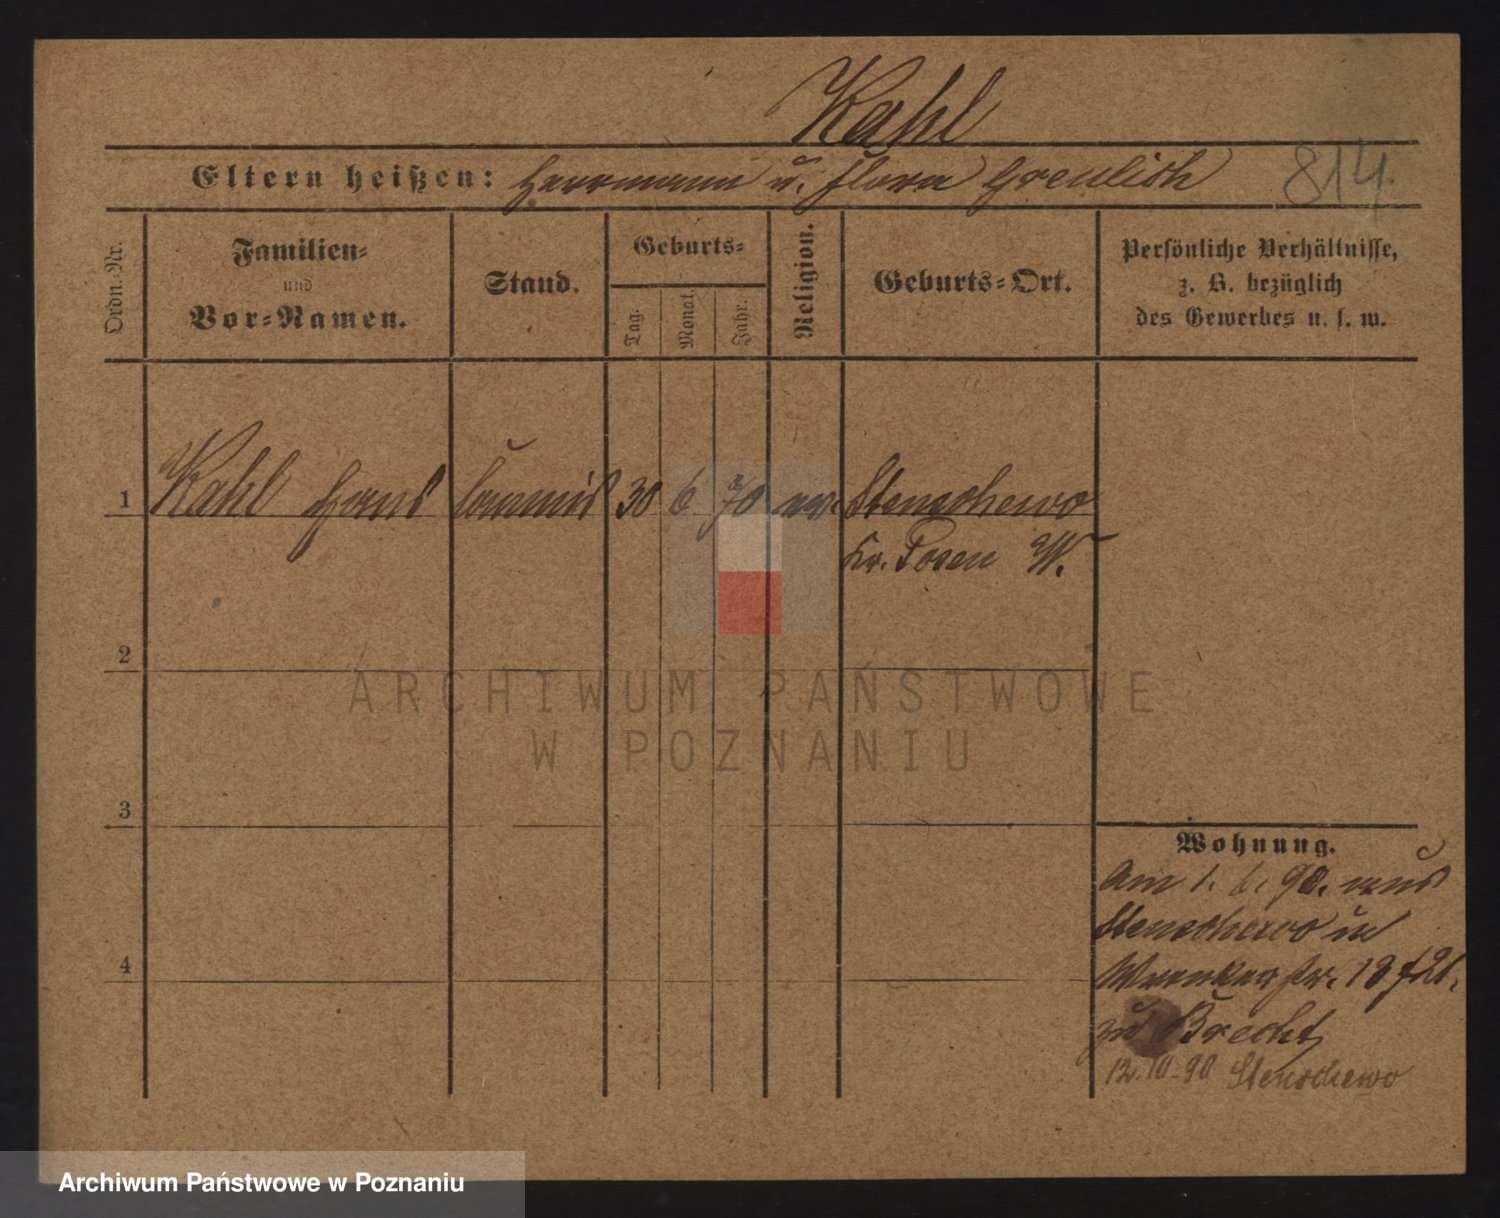 Kahl
Eltern heißen: Herrmann u. Flora Greulich
814.
Ordn.-Nr.
Familien-
und
Vor-Namen.
Stand.
Geburts-
Tag.
Monat.
Jahr.
Religion.
Geburts-Ort.
Persönliche Verhältnisse,
z. B. bezüglich
des Gewerbes u. s. w.
1 Kahl Hans Commis 30 6 70 ev. Stenschewo
Kr. Posen W.
2
3
4
Wohnung.
Am 1. 6. 90. aus
Stenschewo in
Wronkerstr. 18
zu Brecht
12.10.90 Stenschewo
ARCHIWUM PAŃSTWOWE
W POZNANIU
Archiwum Państwowe w Poznaniu